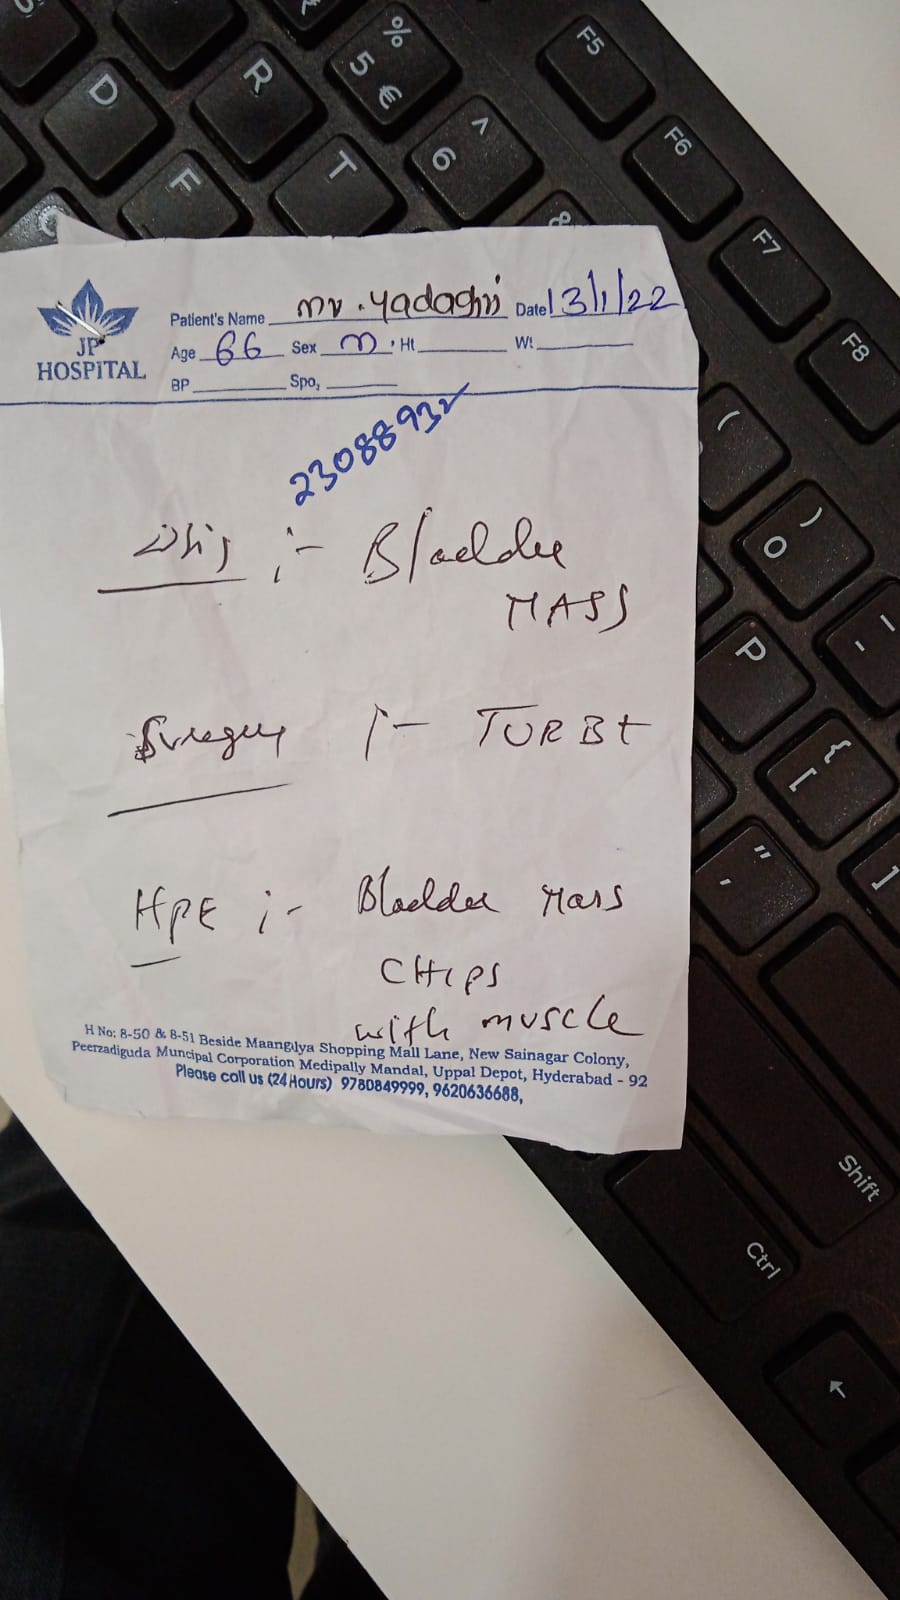 JP
HOSPITAL
Patient's Name Mr. Yadagiri Date 13/1/22
Age 66 Sex M Ht. Wt.
BP Spo2
23088932
:- Bladder
MASS
Surgery :- TURBt
HPE :- Bladder Mass
CHIPS
with muscle
H No: 8-50 & 8-51 Beside Maanglya Shopping Mall Lane, New Sainagar Colony,
Peerzadiguda Muncipal Corporation Medipally Mandal, Uppal Depot, Hyderabad - 92
Please call us (24 Hours) 9780849999, 9620636688,
D
R
F
T
% 5 €
^ 6
8
F5
F6
F7
F8
(
) 0
P
{ [
" '
]
Shift
Ctrl